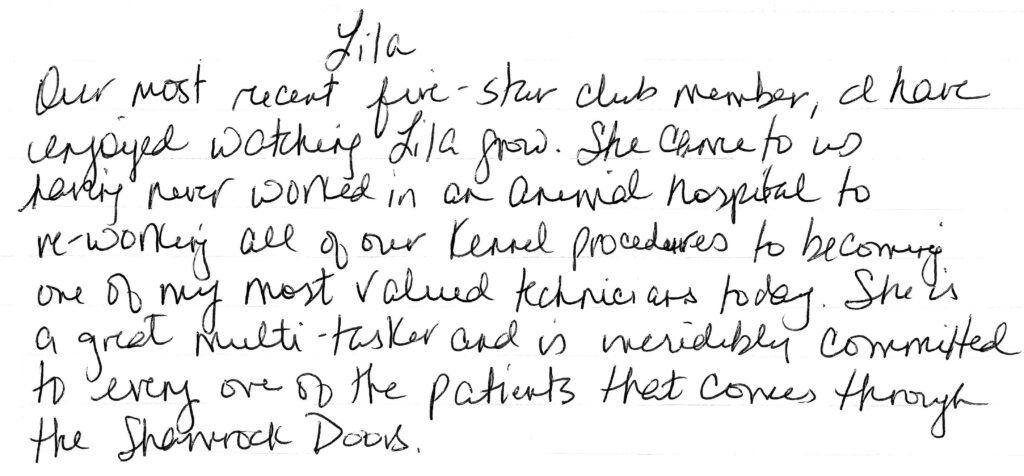 Lila
Our most recent five-star club member, I have
enjoyed watching Lila grow. She came to us
having never worked in an animal hospital to
re-working all of our Kennel procedures to becoming
one of my most valued technicians today. She is
a great multi-tasker and is incredibly committed
to every one of the patients that comes through
the Shamrock Doors.